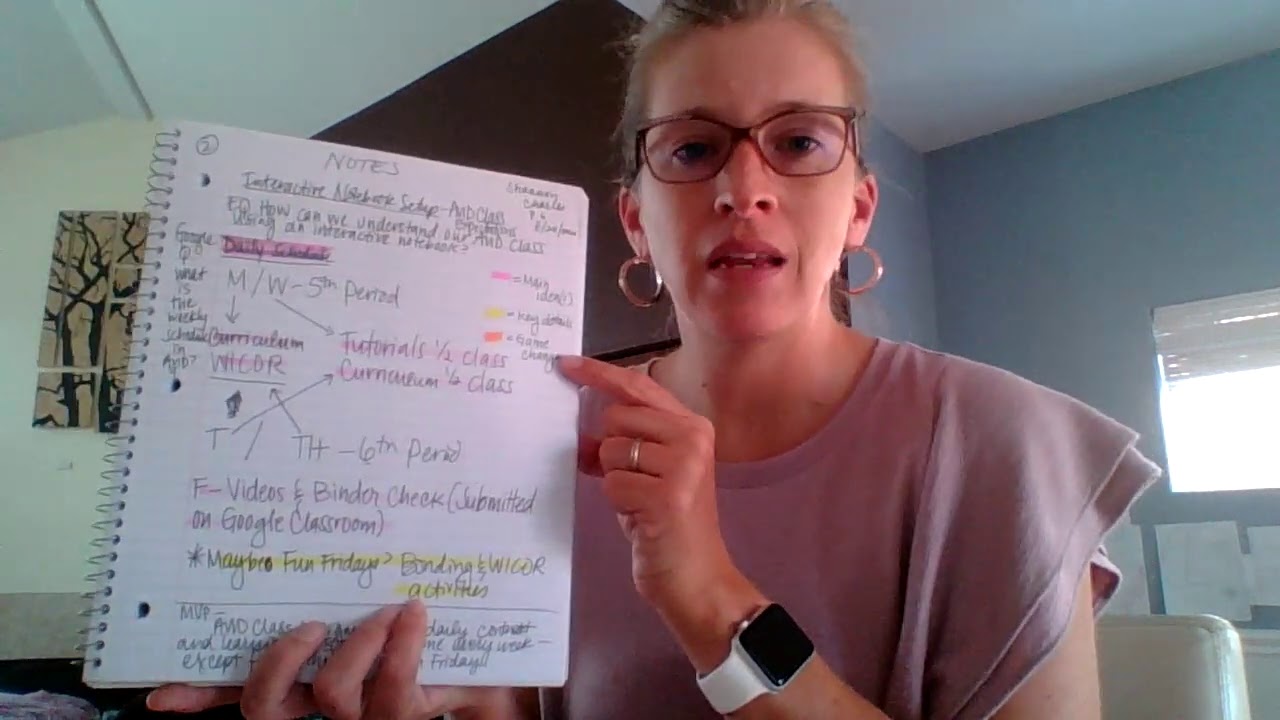 2
NOTES
Interactive Notebook Setup - AVID Class
Expectations
EQ How can we understand our AVID class
using an interactive notebook?
Shannon
Charles
P. 6
Google
Q:
What
is
the
weekly
schedule
in
AVID?
Daily Schedule
M/W - 5th Period
Curriculum
WICOR
Tutorials 1/2 class
Curriculum 1/2 class
= Main
idea(s)
= Key details
= Game
change
T / TH - 6th Period
F - Videos & Binder Check (Submitted
on Google Classroom)
*Maybe Fun Fridays? Bonding & WICOR
activities
MVP -
AVID Class daily content
and every week -
except Friday!